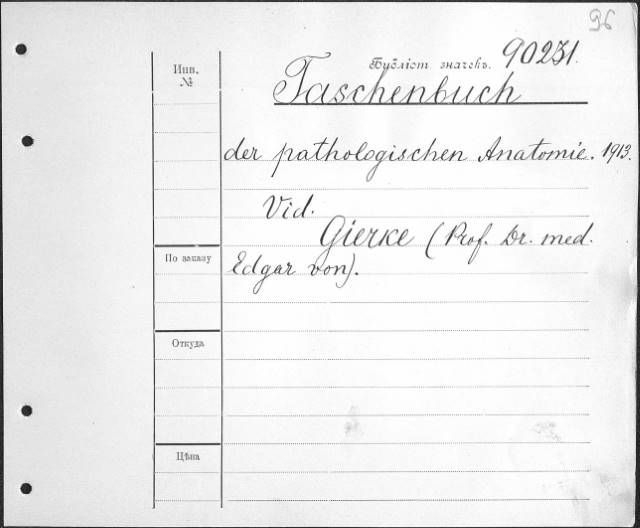 96
Инв.
№
Библіот. значекъ. 90231.
Taschenbuch
der pathologischen Anatomie. 1913.
Vid.
Gierke (Prof. Dr. med.
По заказу
Edgar von).
Откуда
Цѣна